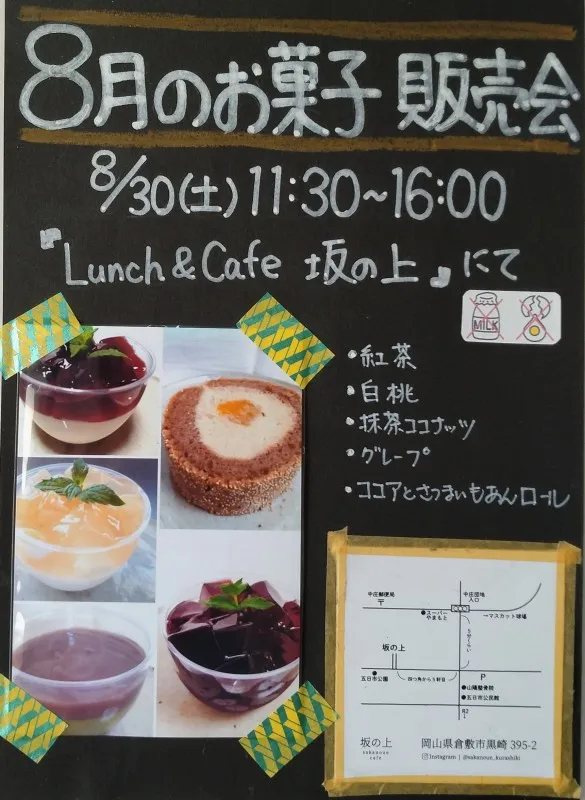 8月のお菓子 販売会
8/30(土) 11:30~16:00
『Lunch & Cafe 坂の上』にて
MILK
・紅茶
・白桃
・抹茶ココナッツ
・グレープ
・ココアとさつまいもあんロール
中庄郵便局
〒
中庄団地
入口
●スーパー
やまもと
→マスカット球場
坂の上
五日市公園
四つ角から5軒目
P
●山陽整骨院
●五日市公民館
R2
↓
坂の上
sakanoue
cafe
岡山県倉敷市黒崎 395-2
Instagram | @sakanoue_kurashiki